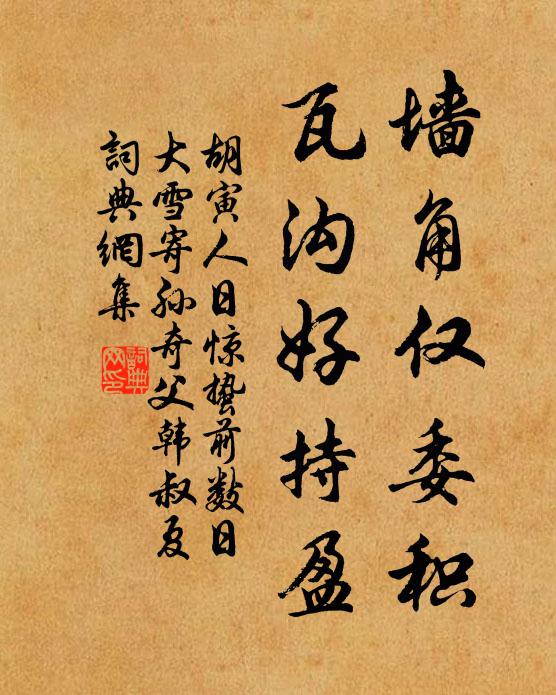 墙角仅委积
瓦沟好持盈
胡寅人日惊蛰前数日
大雪寄孙奇父韩叔夏
詞典網集
詞典
网印